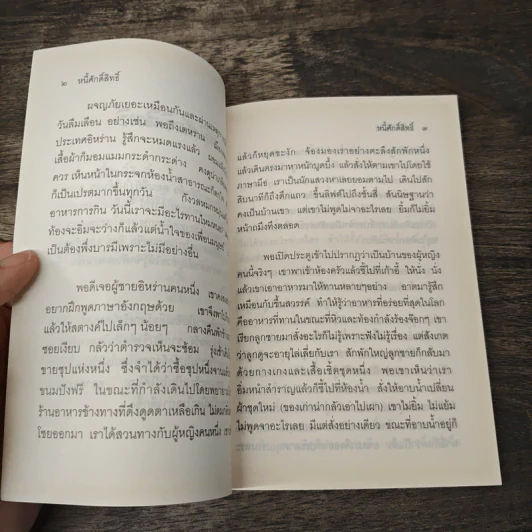 ๒ หนี้ศักดิ์สิทธิ์
ผจญภัยเยอะเหมือนกันและผ่านเหตุ
วันลืมเลือน อย่างเช่น พอถึงเตหะราน
ประเทศอิหร่าน รู้สึกจะหมดแรงแล้ว
เสื้อผ้าก็มอมแมมกระดำกระด่าง
ควร เห็นหน้าในกระจกห้องน้ำสาธารณะก็ตกใจ
ก็เป็นเปรตมากขึ้นทุกวัน กังวลหมกมุ่น
อาหารการกิน วันนี้เราจะมีอะไรทานไหมหนอ
ท้องจะอิ่มจะว่างก็แล้วแต่น้ำใจของเพื่อนมนุษย์
เป็นต้องพึ่งบารมีเพราะไม่มีอย่างอื่น
พอดีเจอผู้ชายอิหร่านคนหนึ่ง เขา
อยากฝึกพูดภาษาอังกฤษด้วย เขาจึงพา
แล้วให้สตางค์ไปเล็กๆ น้อยๆ กลางคืนพัก
ซอยเงียบ กลัวว่าตำรวจเห็นจะซ้อม รุ่งเช้า
ขายซุปแห่งหนึ่ง ซึ่งจำได้ว่าซื้อซุปหนึ่งจาน
ขนมปังฟรี ในขณะที่กำลังเดินไปโดยพยายาม
ร้านอาหารข้างทางที่ดึงดูดตาเหลือเกิน ไม่ดม
โชยออกมา เราได้สวนทางกับผู้หญิงคนหนึ่ง
หนี้ศักดิ์สิทธิ์ ๓
แล้วก็หยุดชะงัก จ้องมองเราอย่างตะลึงสักพักหนึ่ง
แล้วเดินตรงมาหาหน้าบูดบึ้ง แล้วสั่งให้ตามเขาไปโดยใช้
ภาษามือ เราเป็นนักแสวงหาเลยยอมตามไป เดินไปสัก
สิบนาทีก็ถึงตึกแถว ขึ้นลิฟต์ไปชั้นสี่ สันนิษฐานว่า
คงเป็นบ้านเขา แต่เขาไม่พูดจาอะไรเลย ยิ้มก็ไม่ยิ้ม
หน้าถมึงทึงตลอด
พอเปิดประตูเข้าไปปรากฏว่าเป็นบ้านของผู้หญิง
คนนี้จริงๆ เขาพาเข้าห้องครัวแล้วชี้ไปที่เก้าอี้ ให้นั่ง นั่ง
แล้วเขาเอาอาหารมาให้ทานหลายๆอย่าง อาตมารู้สึก
เหมือนกับขึ้นสวรรค์ ทำให้รู้ว่าอาหารที่อร่อยที่สุดในโลก
คืออาหารที่ทานในขณะที่หิวและท้องกำลังร้องจ๊อกๆ เขา
เรียกลูกชายมาสั่งอะไรก็ไม่รู้เพราะฟังไม่รู้เรื่อง แต่สังเกต
ว่าลูกดูจะอายุไล่เลี่ยกับเรา สักพักใหญ่ลูกชายก็กลับมา
ด้วยกางเกงและเสื้อเชิ้ตชุดหนึ่ง พอเขาเห็นว่าเรา
อิ่มหนำสำราญแล้วก็ชี้ไปที่ห้องน้ำ สั่งให้อาบน้ำเปลี่ยน
ผ้าชุดใหม่ (ของเก่าน่ากลัวเอาไปเผา) เขาไม่ยิ้ม ไม่แย้ม
ไม่พูดจาอะไรเลย มีแต่สั่งอย่างเดียว ขณะที่อาบน้ำอยู่ก็